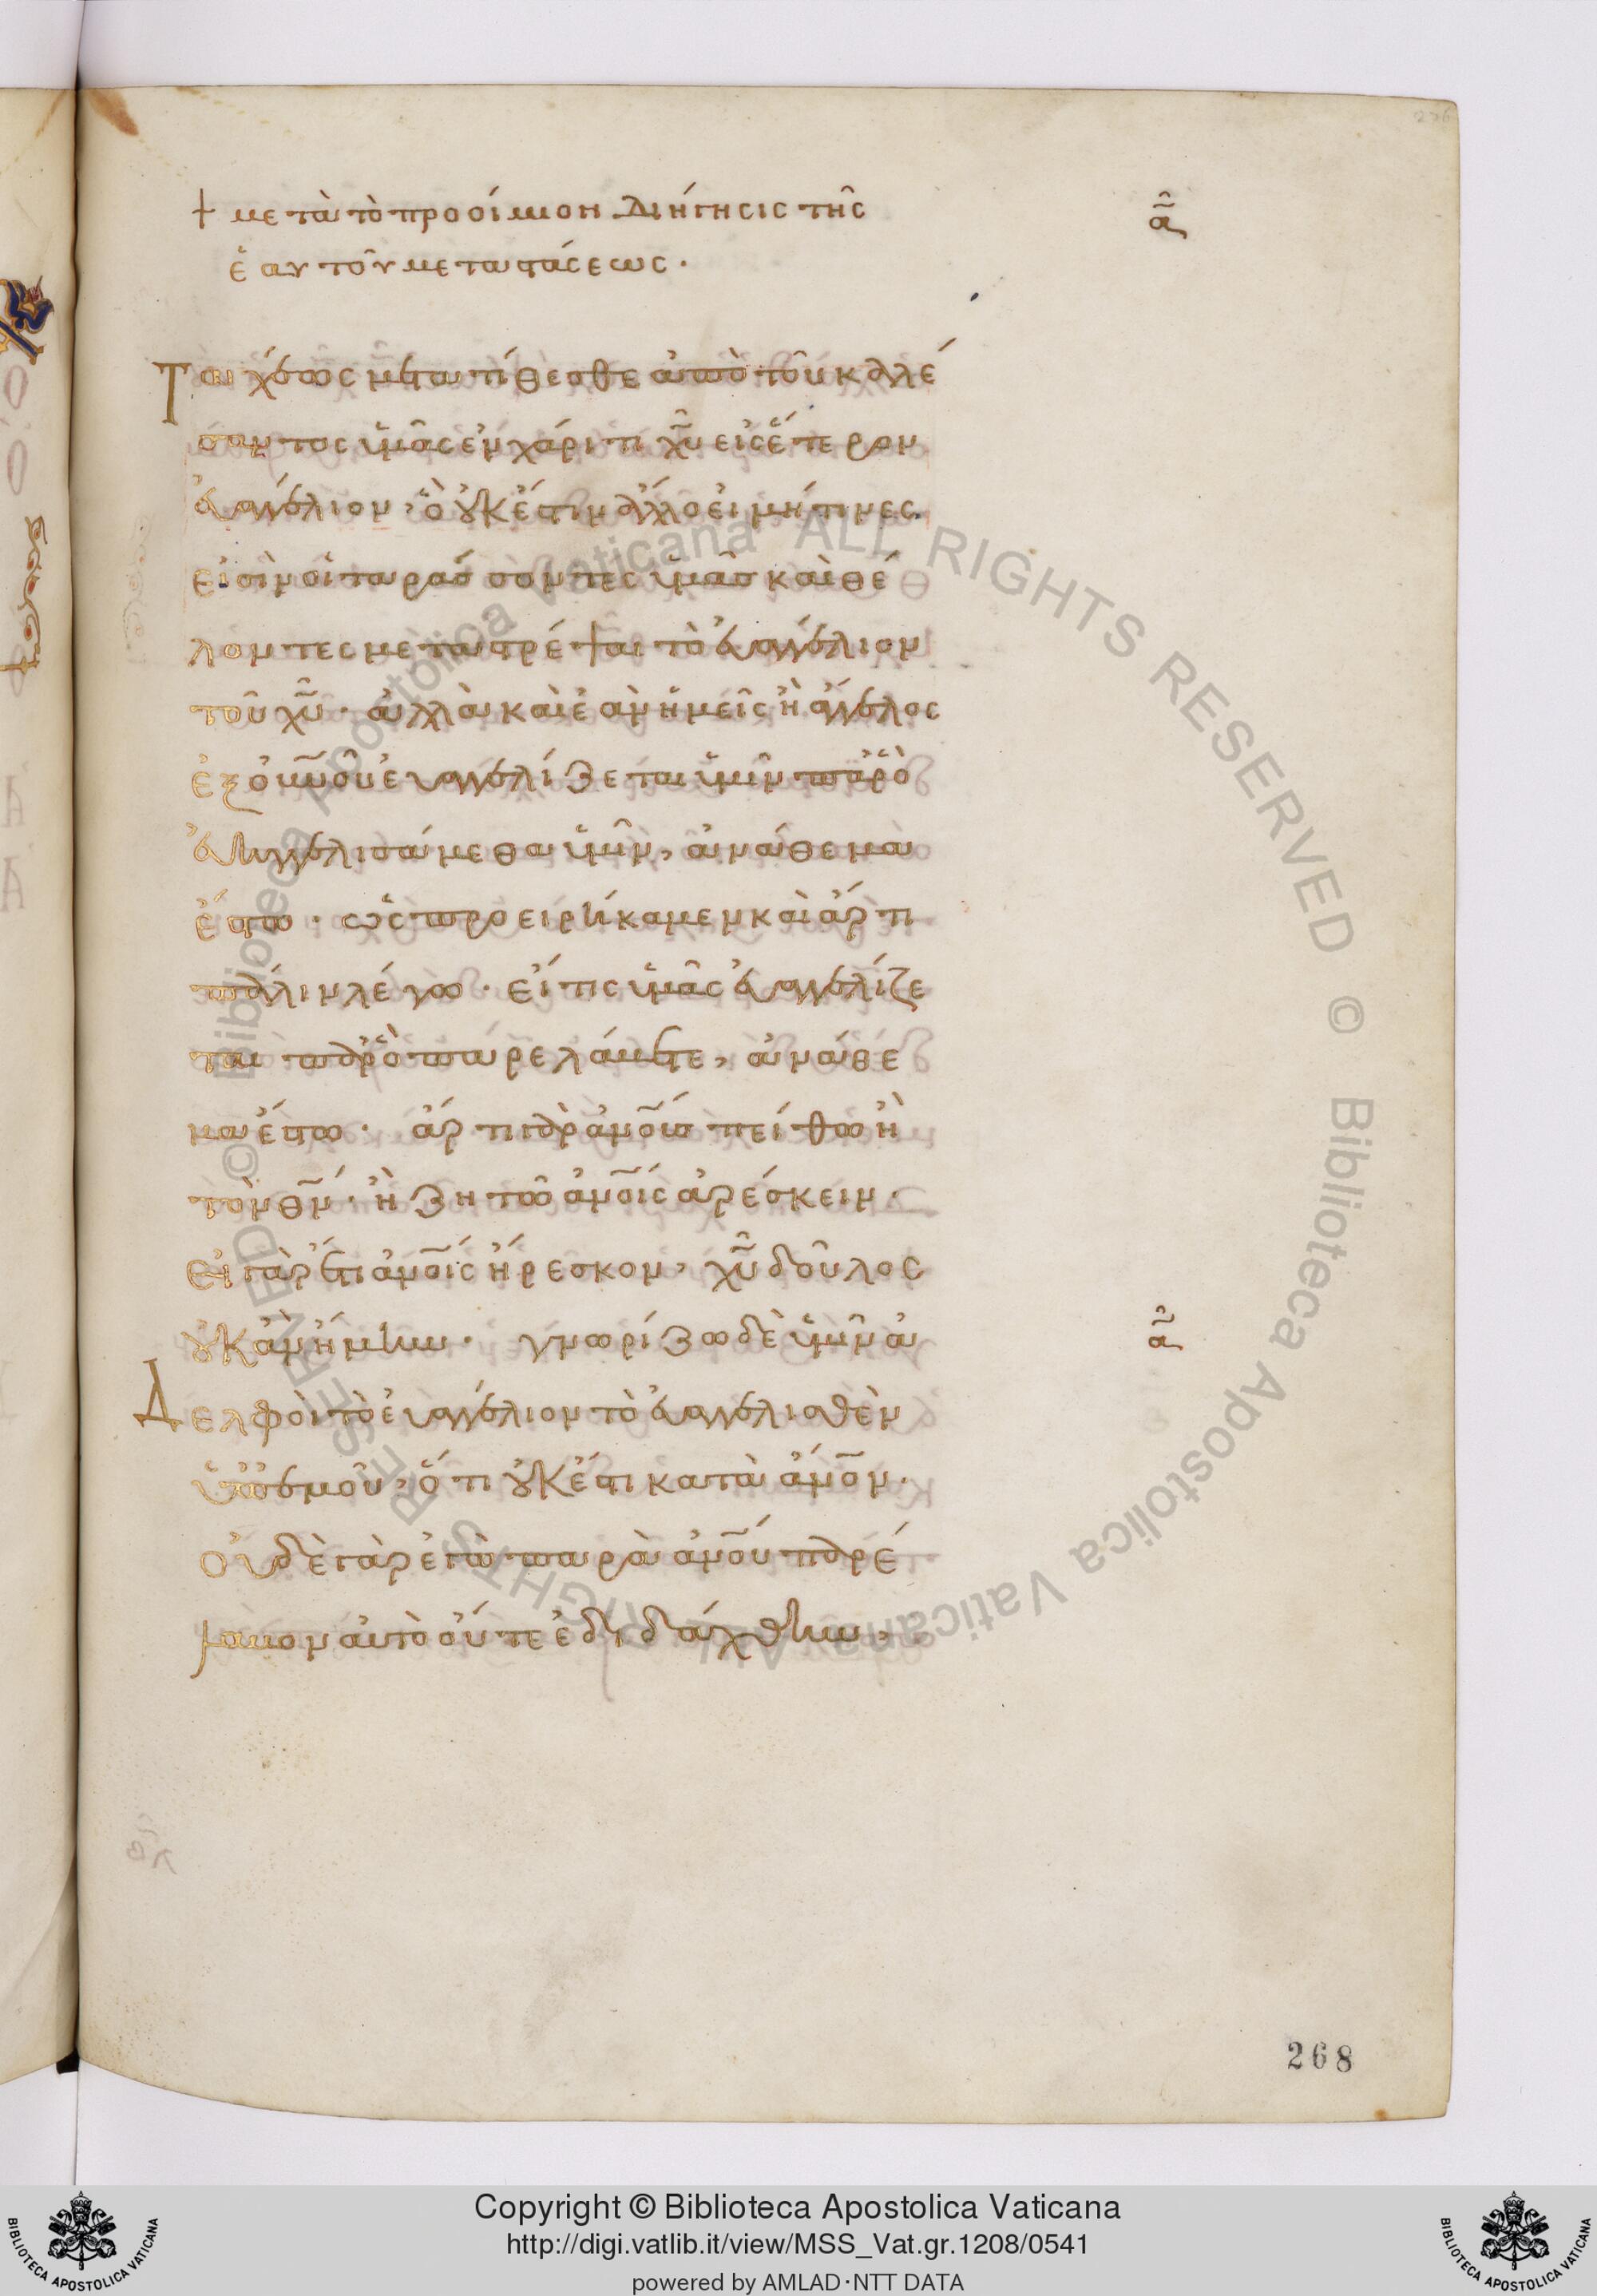 † μετὰ τὸ προοίμιον διήγησις τῆς
ἑαυτοῦ μεταστάσεως·
Ταχέως μετατίθεσθε ἀπὸ τοῦ καλέ
σαντος ὑμᾶς ἐν χάριτι χ̅υ̅ εἰς ἕτερον
εὐαγγέλιον, ὃ οὐκ ἔστιν ἄλλο εἰ μή τινες
εἰσὶν οἱ ταράσσοντες ὑμᾶς καὶ θέ
λοντες μεταστρέψαι τὸ εὐαγγέλιον
τοῦ χ̅υ̅· ἀλλὰ καὶ ἐὰν ἡμεῖς ἢ ἄγγελος
ἐξ ο̅υ̅ν̅οῦ εὐαγγελίζεται ὑμῖν παρ' ὃ
εὐηγγελισάμεθα ὑμῖν, ἀνάθεμα
ἔστω· ὡς προειρήκαμεν καὶ ἄρτι
πάλιν λέγω· εἴ τις ὑμᾶς εὐαγγελίζε
ται παρ' ὃ παρελάβετε, ἀνάθε
μα ἔστω· ἄρτι γὰρ α̅ν̅ο̅ι̅ς πείθω ἢ
τὸν θ̅ν̅· ἢ ζητῶ α̅ν̅ο̅ι̅ς ἀρέσκειν·
εἰ γὰρ ἔτι α̅ν̅ο̅ι̅ς ἤρεσκον, χ̅υ̅ δοῦλος
οὐκ ἂν ἤμην· γνωρίζω δὲ ὑμῖν ἀ
Δελφοὶ τὸ εὐαγγέλιον τὸ εὐαγγελισθὲν
ὑπ' ἐμοῦ, ὅτι οὐκ ἔστι κατὰ α̅ν̅ο̅ν·
οὐδὲ γὰρ ἐγὼ παρὰ α̅ν̅ο̅υ̅ παρέ
λαβον αὐτὸ οὔτε ἐδιδάχθην,
268
Copyright © Biblioteca Apostolica Vaticana
http://digi.vatlib.it/view/MSS_Vat.gr.1208/0541
powered by AMLAD·NTT DATA
BIBLIOTECA APOSTOLICA VATICANA
BIBLIOTECA APOSTOLICA VATICANA
© Biblioteca Apostolica Vaticana ALL RIGHTS RESERVED © Biblioteca Apostolica Vaticana ALL RIGHTS RESERVED